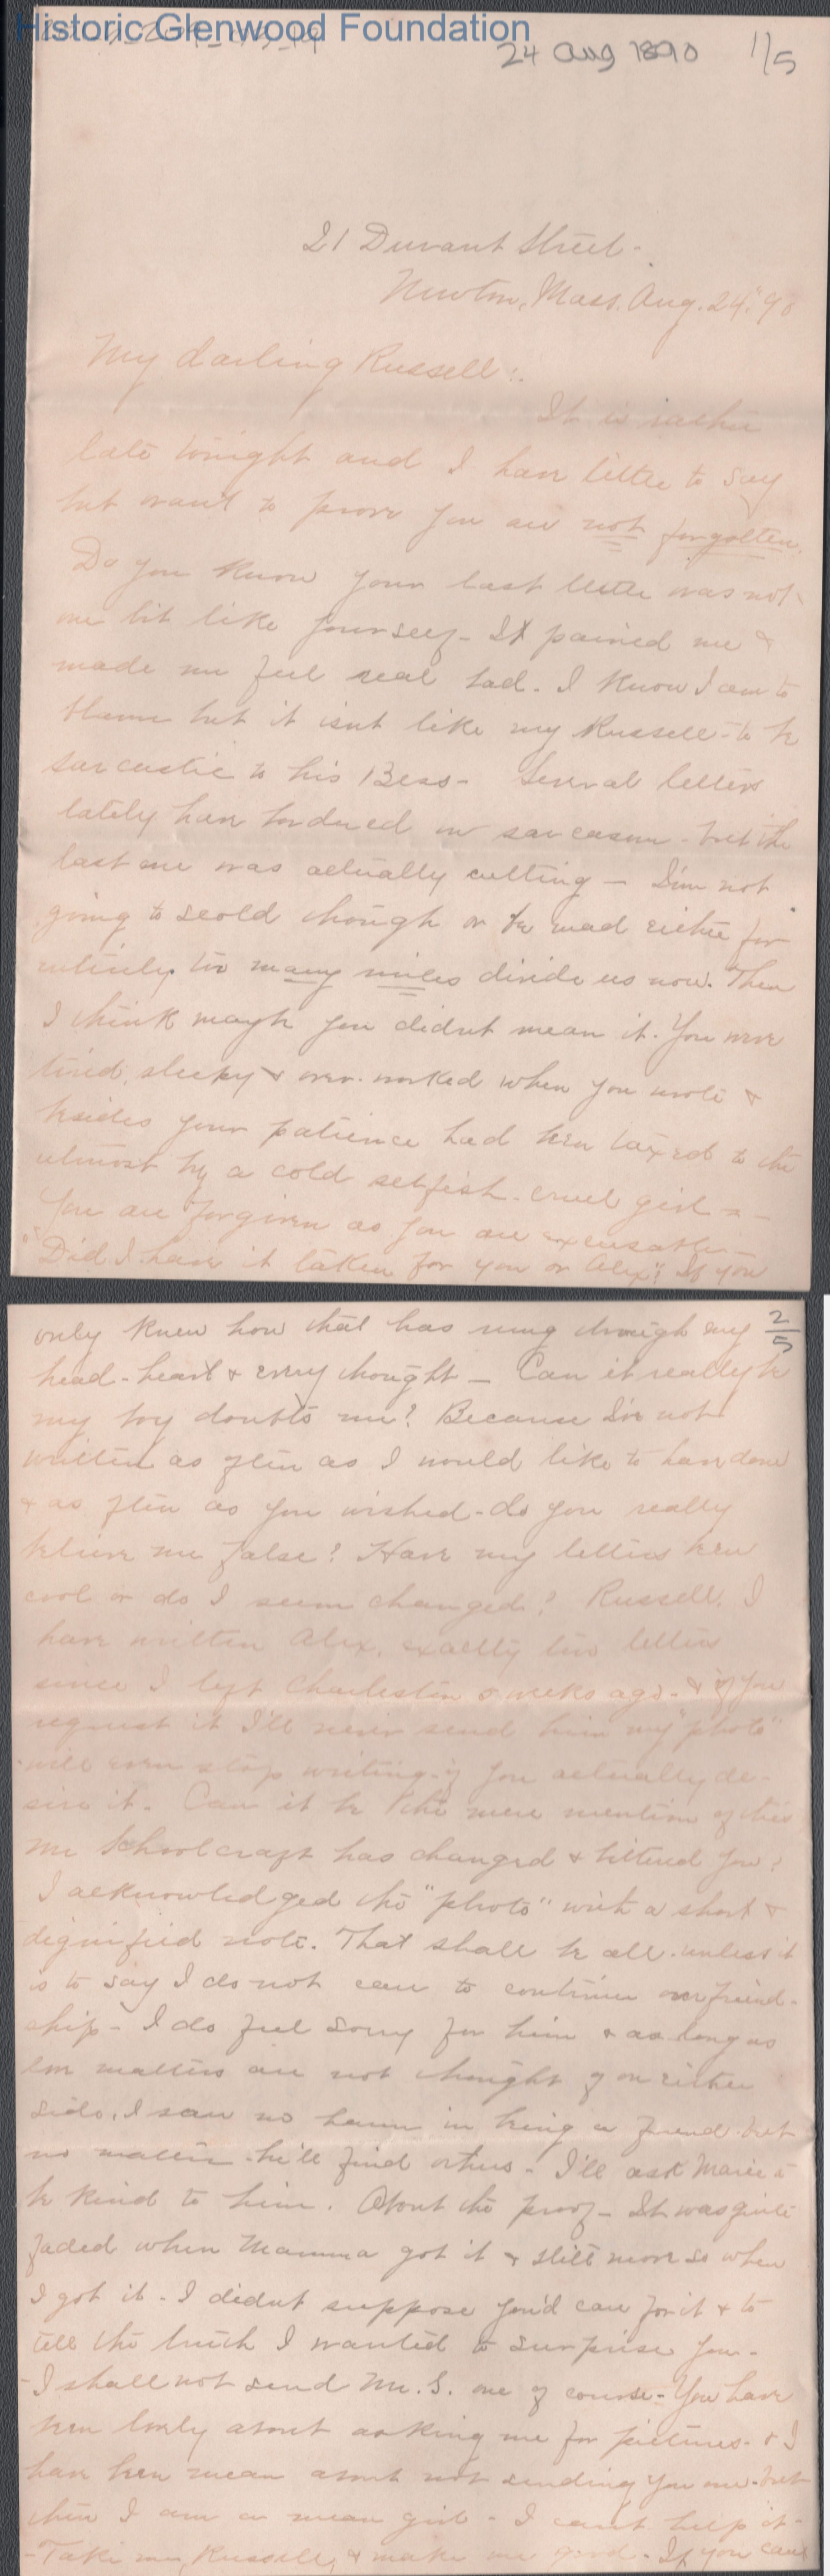 Historic Glenwood Foundation
24 Aug 1890 1/5
21 Durant Street.
Newton, Mass. Aug. 24." 90
My darling Russell:
It is rather
late tonight and I have little to say
but want to prove you are not forgotten.
Do you know your last letter was not
one bit like yourself - It pained me &
made me feel real bad. I know I am to
blame but it isnt like my Russell - to be
sarcastic to his Bess - Several letters
lately have bordered on sarcasm - but the
last one was actually cutting - I'm not
going to scold though or be mad either for
entirely too many miles divide us now. Then
I think maybe you didnt mean it. You were
tired, sleepy & over-worked when you wrote &
besides your patience had been taxed to the
utmost by a cold selfish - cruel girl -
You are forgiven as you are excusable -
"Did I have it taken for you or Alex"? If you
only knew how that has rung through my 2/5
head - heart & every thought - Can it really be
my boy doubts me? Because I've not
written as often as I would like to have done
& as often as you wished - do you really
believe me false? Have my letters been
cool or do I seem changed? Russell, I
have written Alex, exactly two letters
since I left Charleston 5 weeks ago - & if you
request it I'll never send him my "photo"
will even stop writing if you actually de-
sire it. Can it be the mere mention of this
Mr Schoolcraft has changed & bittered you?
I acknowledged the "photo" with a short &
dignified note. That shall be all - unless it
is to say I do not care to continue our friend-
ship - I do feel sorry for him & as long as
love matters are not thought of on either
side, I saw no harm in being a friend - but
no matter - he'll find others - I'll ask Marie to
be kind to him. About the proof - It was quite
faded when Mamma got it & still more so when
I got it - I didnt suppose you'd care for it & to
tell the truth I wanted to surprise you -
- I shall not send Mr. S. one of course - You have
been lovely about asking me for pictures - & I
have been mean about not sending you one - but
then I am a mean girl - I cant help it -
- Take me, Russell, & make me good - If you can